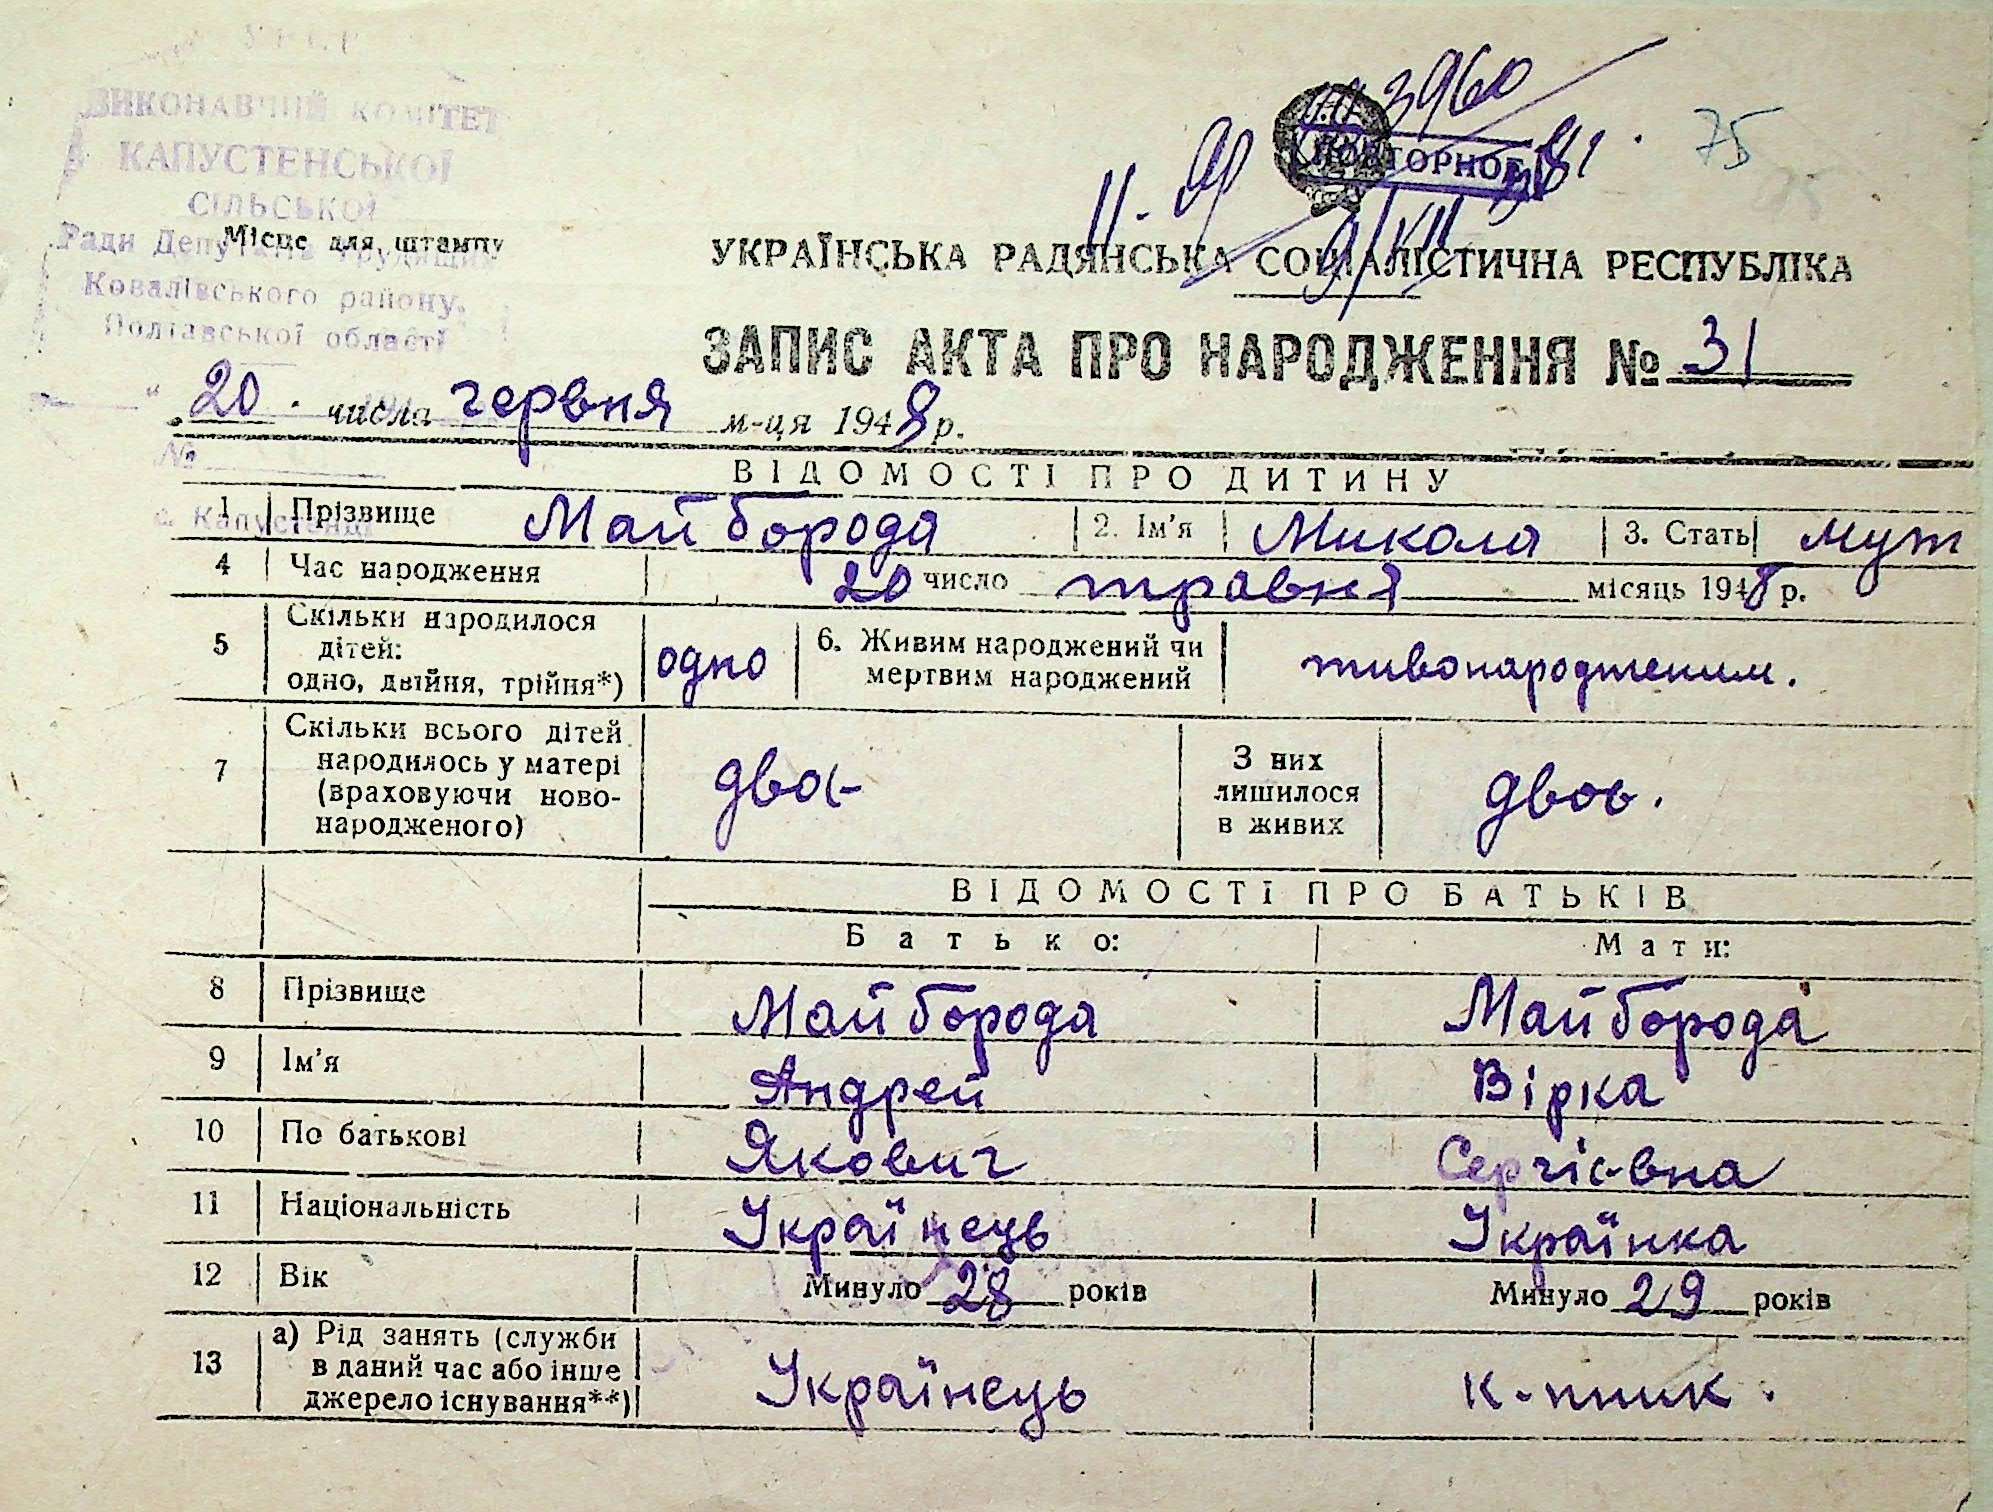 ВИКОНАВЧИЙ КОМІТЕТ
КАПУСТЕНСЬКОЇ
СІЛЬСЬКОЇ
Ради Депутатів Трудящих
Ковалівського району,
Полтавської області
№
с. Капустенці
Місце для штампу
3960
ПОВТОРНОЕ
81.
75
УКРАЇНСЬКА РАДЯНСЬКА СОЦІАЛІСТИЧНА РЕСПУБЛІКА
ЗАПИС АКТА ПРО НАРОДЖЕННЯ № 31
„20. числа червня м-ця 1948 р.
ВІДОМОСТІ ПРО ДИТИНУ
1 Прізвище Майборода 2. Ім'я Микола 3. Стать муж
4 Час народження 20 число травня місяць 1948 р.
5 Скільки народилося
дітей:
одно, двійня, трійня*) одно 6. Живим народжений чи
мертвим народжений живонародженим.
7 Скільки всього дітей
народилось у матері
(враховуючи ново-
народженого) двоє З них
лишилося
в живих двоє.
ВІДОМОСТІ ПРО БАТЬКІВ
Батько: Мати:
8 Прізвище Майборода Майборода
9 Ім'я Андрей Вірка
10 По батькові Якович Сергієвна
11 Національність Українець Українка
12 Вік Минуло 28 років Минуло 29 років
13 а) Рід занять (служби
в даний час або інше
джерело існування**) Українець к-пник.